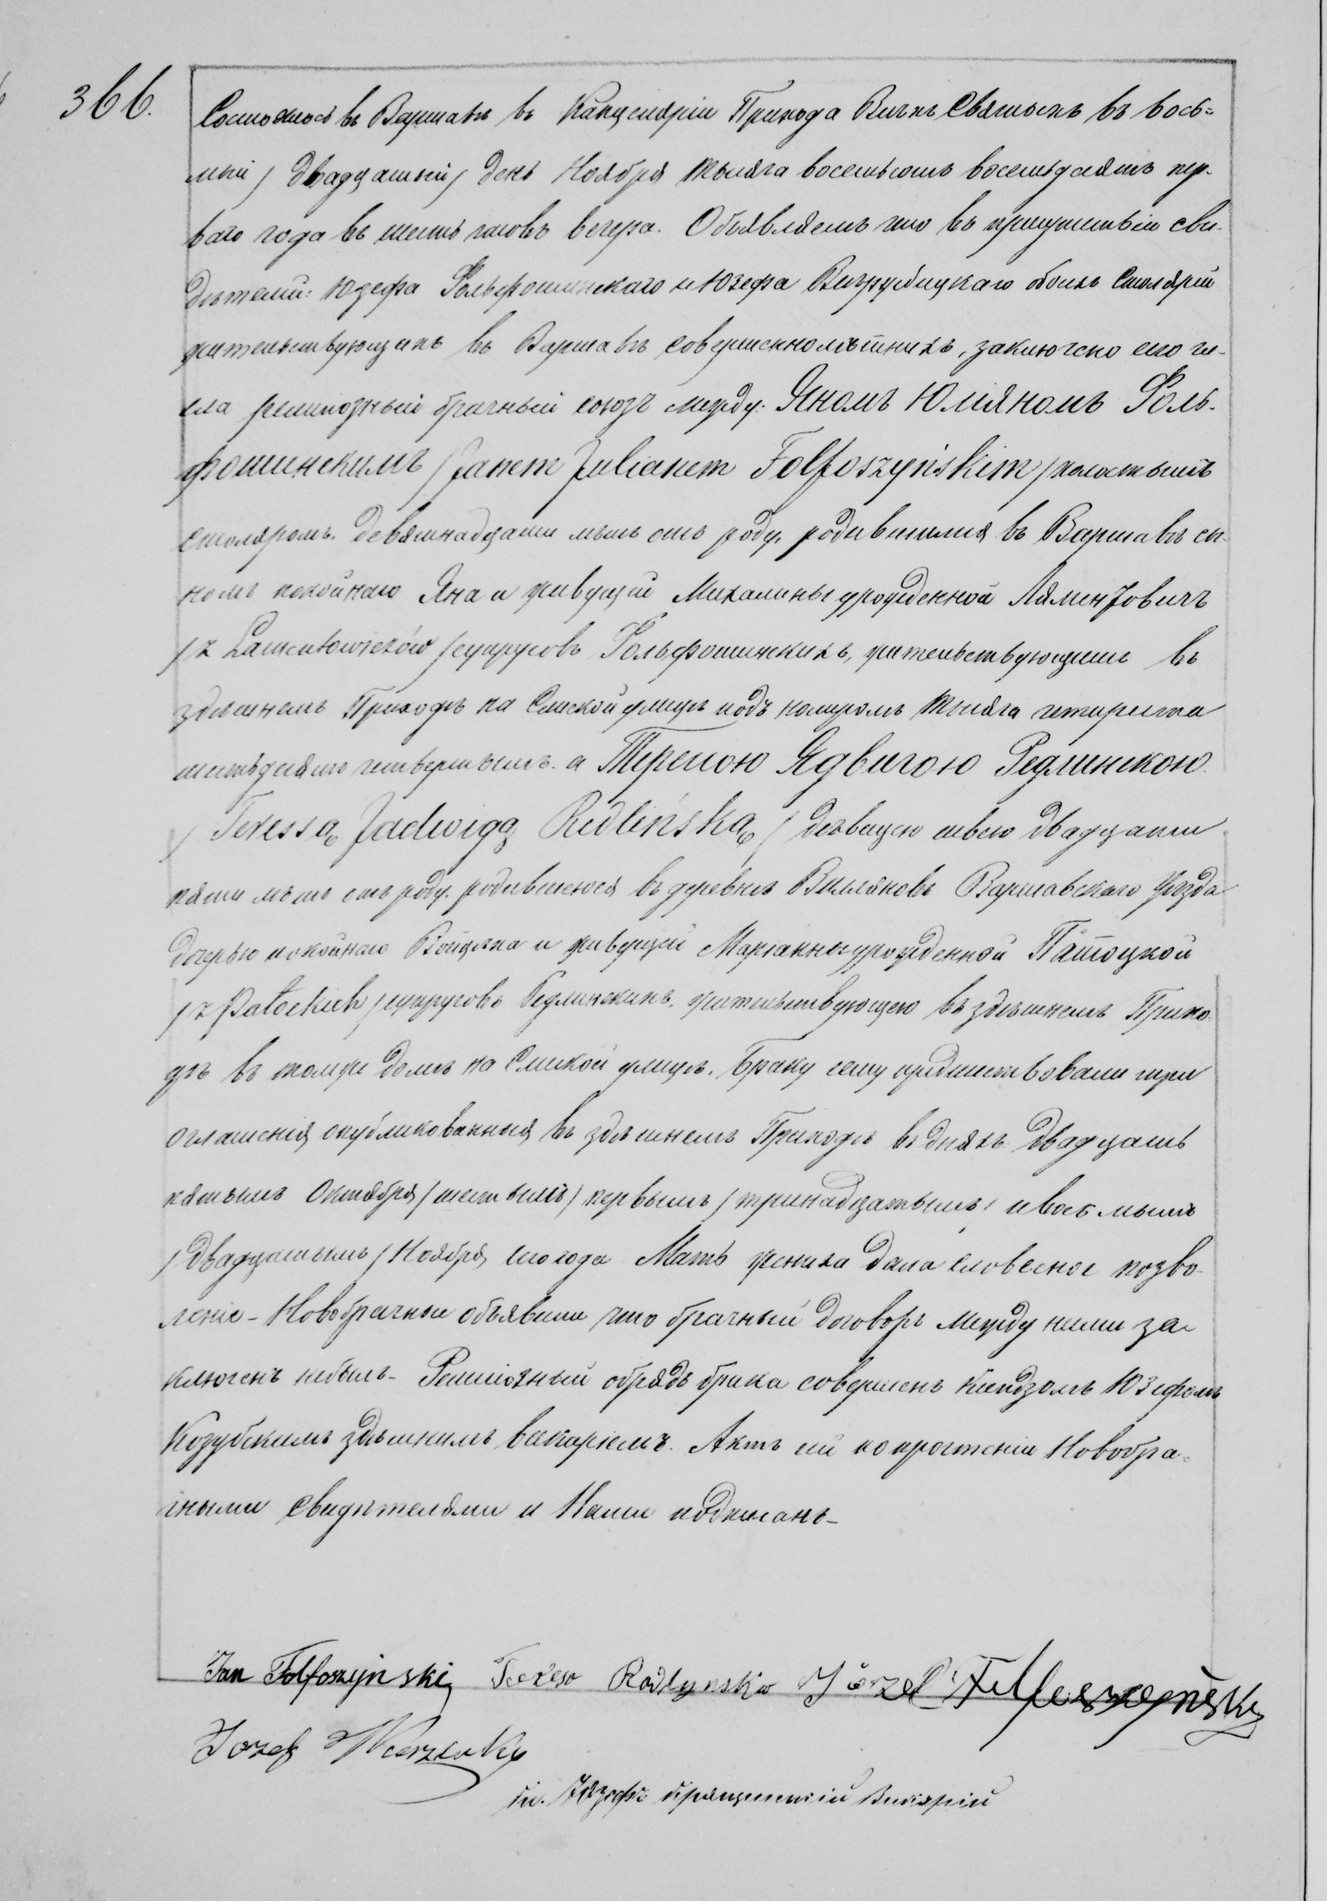 366.
Состоялось въ Варшавѣ въ Канцеляріи Прихода Всѣхъ Святыхъ въ вось=
мый / двадцатый / день Ноября тысяча восемьсотъ восемьдесятъ пер-
ваго года въ шесть часовъ вечера. Объявляемъ что въ присутствіи сви-
дѣтелей: Юзефа Фольфошинскаго и Юзефа обоихъ Столярей
жительствующихъ въ Варшавѣ совершеннолѣтнихъ, заключено сего чи-
сла религіозный брачный союзъ между: Яномъ Юліяномъ Фоль-
фошинскимъ / Janem Julianem Folfoszyńskim / холостымъ
столяромъ, девятнадцати лѣтъ отъ роду, родившимся въ Варшавѣ сы-
номъ покойнаго Яна и живущей Михалины урожденной Ляментовичъ
/ z Lamentowiczów / супруговъ Фольфошинскихъ, жительствующимъ въ
здѣшнемъ Приходѣ на улицѣ подъ номеромъ тысяча четыреста
шестьдесятъ четвертымъ. а Тересою Ядвигою Редлинскою
/ Teressą Jadwigą Redlińską / дѣвицею швею двадцати
пяти лѣтъ отъ роду, родившеюся въ деревнѣ Виляновѣ Варшавскаго Уѣзда
дочерью покойнаго Войцѣха и живущей Маріанны урожденной Патоцкой
/ z Patockich / супруговъ Редлинскихъ, жительствующею въ здѣшнемъ Прихо-
дѣ въ томже домѣ на улицѣ. Браку сему предшествовали три
оглашенія опубликованныя въ здѣшнемъ Приходѣ въ дняхъ двадцать
пятымъ Октября / шестымъ / первымъ / тринадцатымъ / и восьмымъ
/ двадцатымъ / Ноября сего года Мать жениха дала словесное позво-
леніе - Новобрачные объявили что брачный договоръ между ними за-
ключенъ небылъ - Религіозный обрядъ брака совершенъ Ксендзомъ Юзефомъ
Козубскимъ здѣшнимъ викаріемъ. Актъ сей по прочтеніи Новобра-
чными свидѣтелями и Нами подписанъ -
Jan Folfoszyński Teresa Redlynska Józef Folfoszyński
Jozef
Кс. Іозефъ Викарій